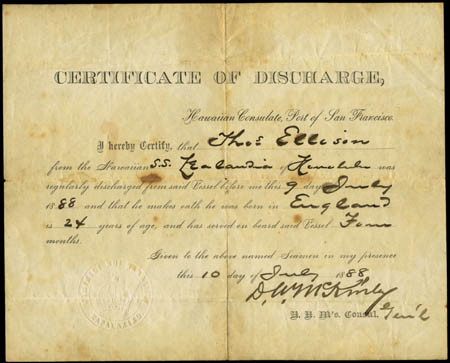 CERTIFICATE OF DISCHARGE,
Hawaiian Consulate, Port of San Francisco.
I hereby Certify, that Thos Ellison
from the Hawaiian S.S. Zealandia of Honolulu was
regularly discharged from said Vessel before me this 9 day July
1888 and that he makes oath he was born in England
is 24 years of age, and has served on board said Vessel Four
months.
Given to the above named Seamen in my presence
this 10 day of July 1888
D. A. McKinley
H. H. M's. Consul, Gen'l